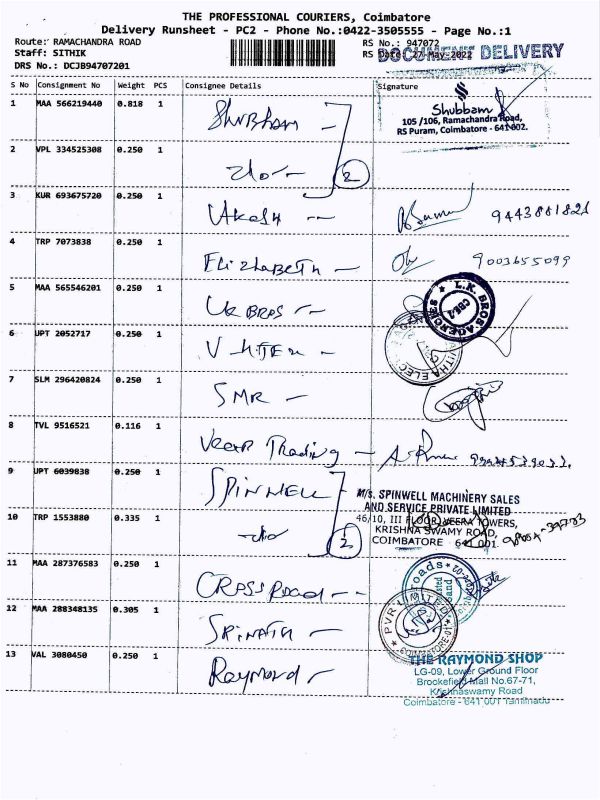 THE PROFESSIONAL COURIERS, Coimbatore
Delivery Runsheet - PC2 - Phone No.:0422-3505555 - Page No.:1
Route: RAMACHANDRA ROAD
RS No.: 947072
Staff: SITHIK
RS Date: 27-May-2022
DOCUMENT DELIVERY
DRS No.: DCJB94707201
S No Consignment No Weight PCS Consignee Details Signature
1 MAA 566219440 0.818 1 Shubham
Shubham
105 /106, Ramachandra Road,
RS Puram, Coimbatore - 641 002.
2 VPL 334525308 0.250 1 2
3 KUR 693675720 0.250 1 Akash 9443881821
4 TRP 7073838 0.250 1 Elizhabeth 9003655099
5 MAA 565546201 0.250 1 LK BROS
L.K. BROS AGENCIES
CBE-1
6 JPT 2052717 0.250 1
7 SLM 296420824 0.250 1 SMR
8 TVL 9516521 0.116 1 Veer Trading
9 JPT 6039838 0.250 1 SPINWELL
M/s. SPINWELL MACHINERY SALES
AND SERVICE PRIVATE LIMITED
46/10, III FLOOR, VEERA TOWERS,
KRISHNA SWAMY ROAD,
COIMBATORE - 641 001
10 TRP 1553880 0.335 1 2
11 MAA 287376583 0.250 1 CROSSROAD
12 MAA 288348135 0.305 1 SRINATH
PVR LIMITED
COIMBATORE-01
13 VAL 3080450 0.250 1 Raymond
THE RAYMOND SHOP
LG-09, Lower Ground Floor
Brookefield Mall No.67-71,
Krishnaswamy Road
Coimbatore - 641 001 Tamilnadu